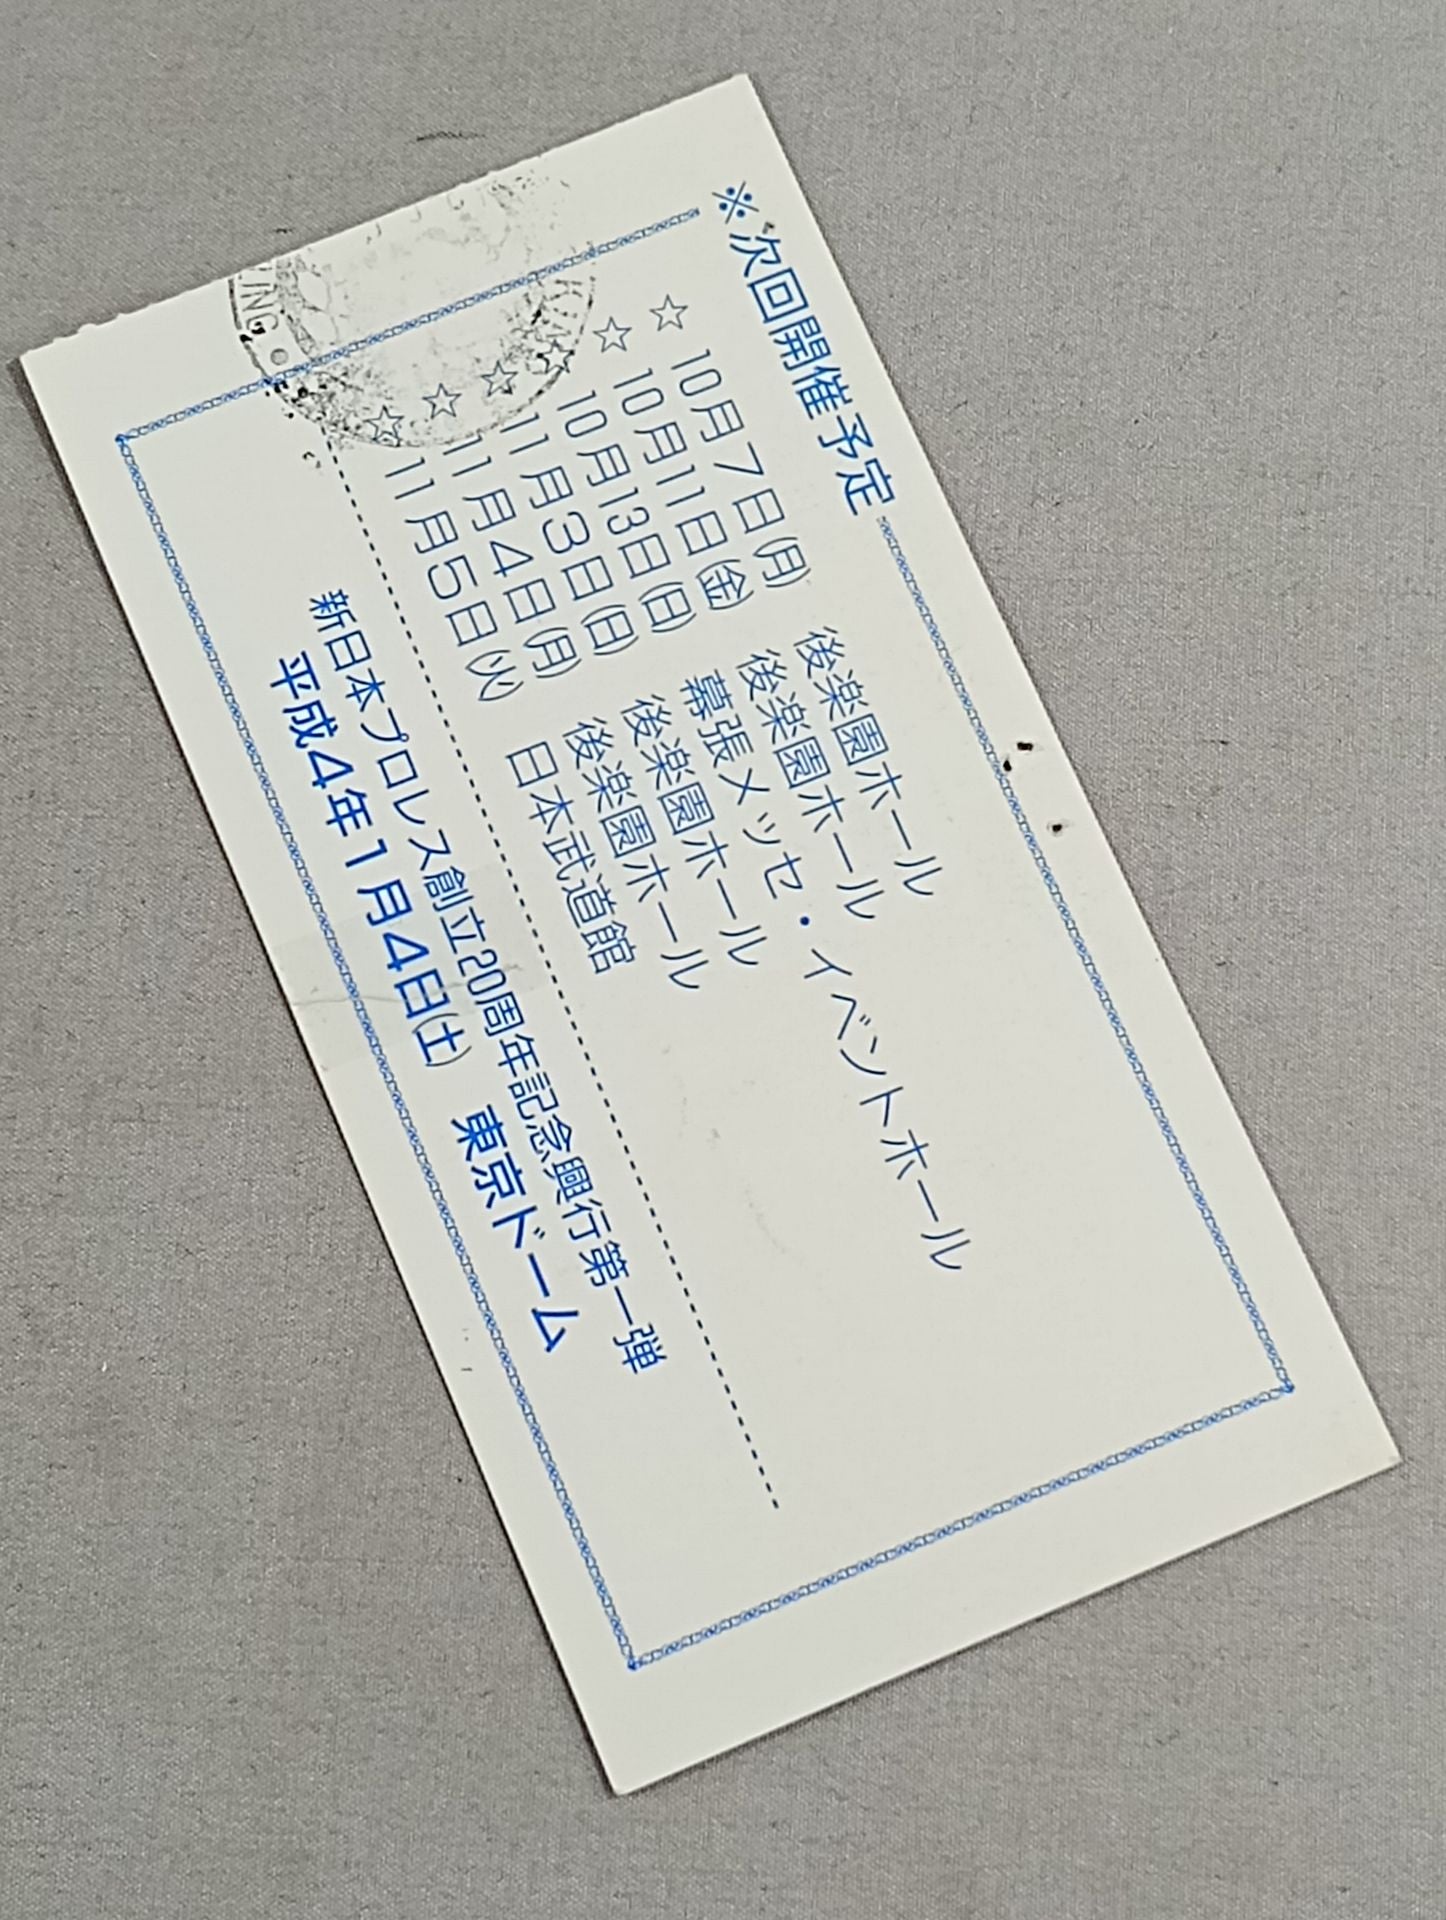 ※次回開催予定
☆ 10月7日(月) 後楽園ホール
☆ 10月11日(金) 後楽園ホール
☆ 10月13日(日) 幕張メッセ・イベントホール
☆ 11月3日(日) 後楽園ホール
☆ 11月4日(月) 後楽園ホール
☆ 11月5日(火) 日本武道館
新日本プロレス創立20周年記念興行第一弾
平成4年1月4日(土) 東京ドーム